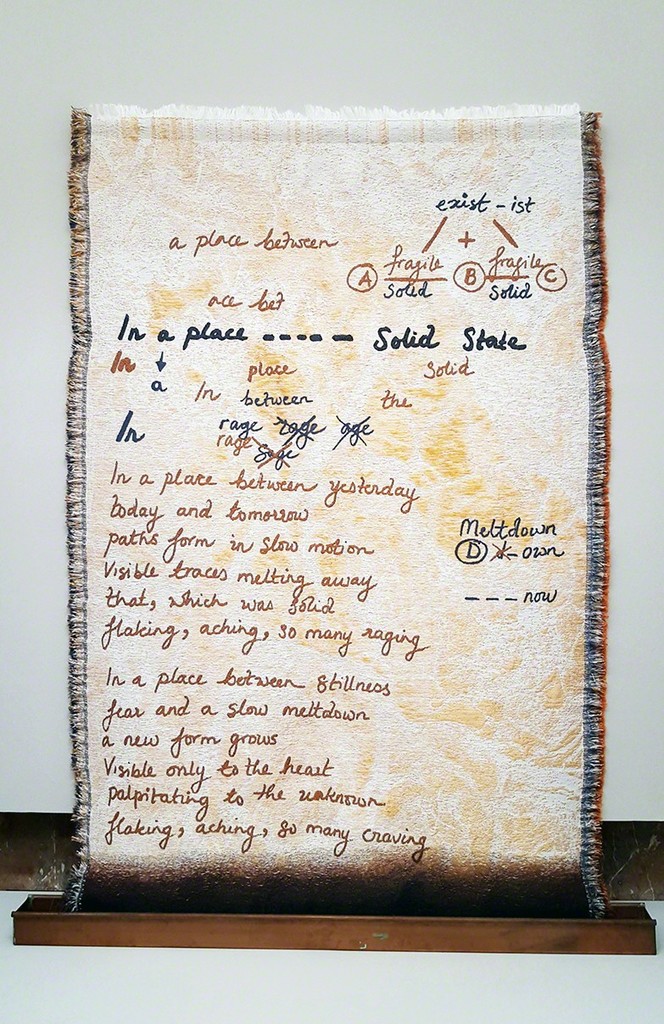 exist - ist
a place between
+
A fragile B fragile C
solid solid
ace bet
In a place ----- Solid State
In place solid
a In between the
In rage rage age
rage sage
In a place between yesterday
today and tomorrow
paths form in slow motion
Meltdown
Visible traces melting away
D d-own
that, which was solid
--- now
flaking, aching, so many raging
In a place between stillness
fear and a slow meltdown
a new form grows
Visible only to the heart
palpitating to the unknown
flaking, aching, so many craving